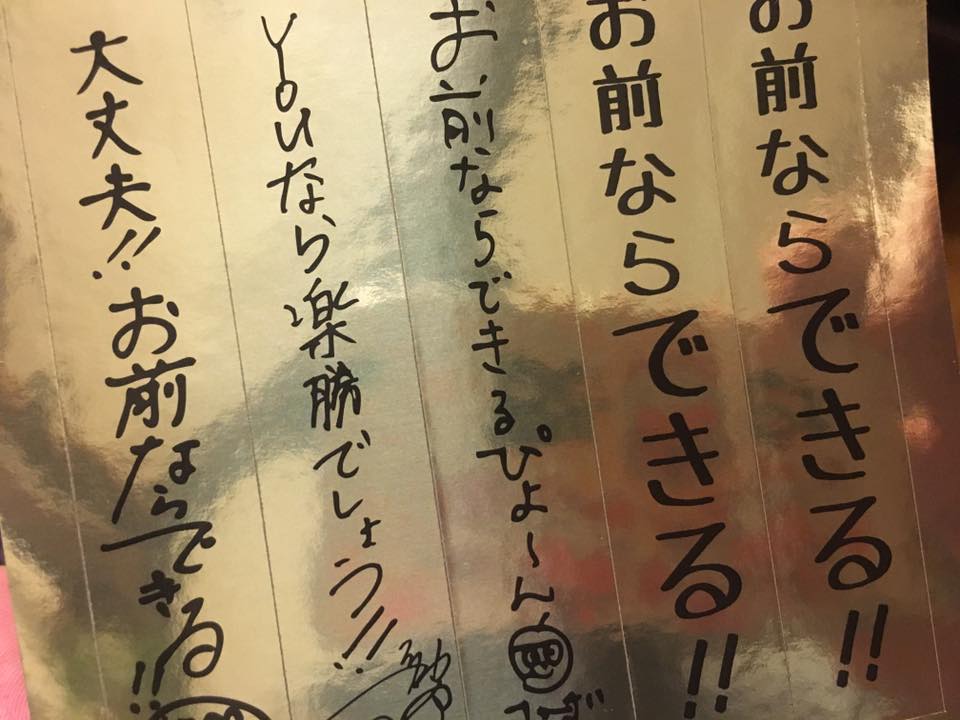 お前ならできる!!
お前ならできる!!
お前ならできるぴょ〜ん
youなら楽勝でしょう!!
大丈夫!!お前ならできる!!